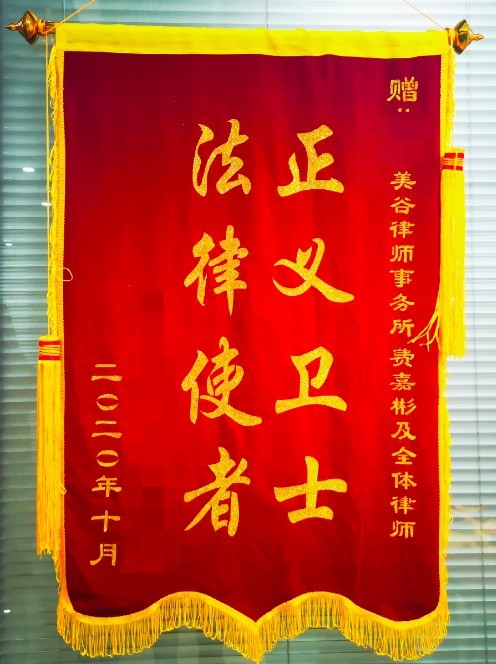 赠:
美谷律师事务所费嘉彬及全体律师
正义卫士
法律使者
二〇二〇年十月